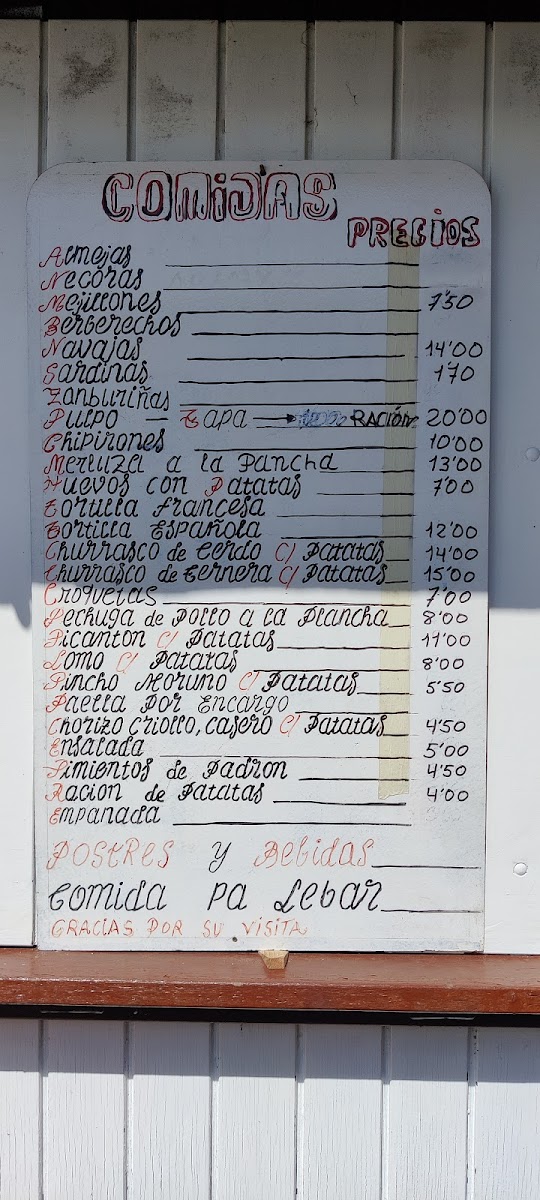 COMIDAS
PRECIOS
Almejas
Necoras
Mejillones 7'50
Berberechos
Navajas 14'00
Sardinas 1'70
Zanburiñas
Pulpo — Tapa RACIÓN 20'00
Chipirones 10'00
Merluza a la Pancha 13'00
Huevos con Patatas 7'00
Tortilla francesa
Tortilla Española 12'00
Churrasco de Cerdo C/ Patatas 14'00
Churrasco de Ternera C/ Patatas 15'00
Croquetas 7'00
Pechuga de Pollo a la Plancha 8'00
Picanton C/ Patatas 11'00
Lomo C/ Patatas 8'00
Pincho Moruno C/ Patatas 5'50
Paella Por Encargo
Chorizo Criollo, casero C/ Patatas 4'50
Ensalada 5'00
Pimientos de Padron 4'50
Racion de Patatas 4'00
Empanada
POSTRES y Bebidas
Comida pa Lebar
GRACIAS POR SU VISITA